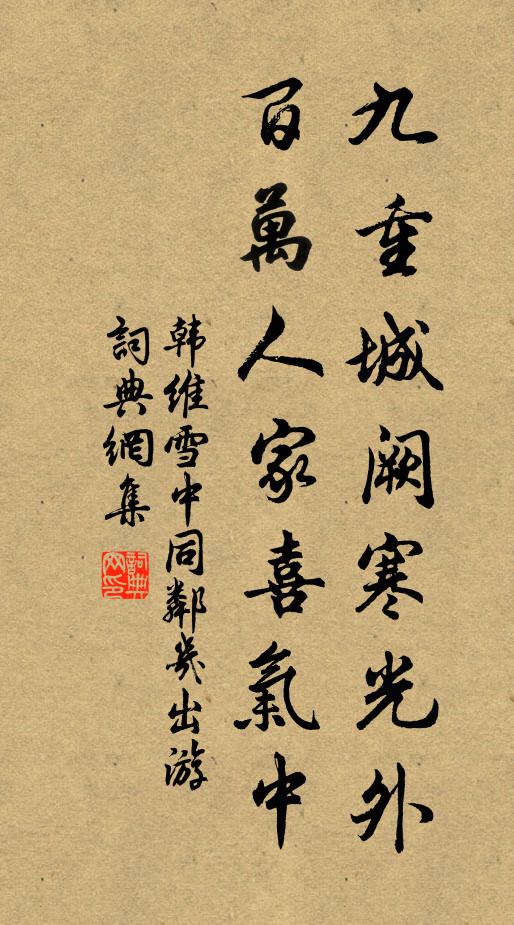 九重城阙寒光外
百萬人家喜氣中
韩維雪中同鄰幾出游
詞典網集
詞典网印